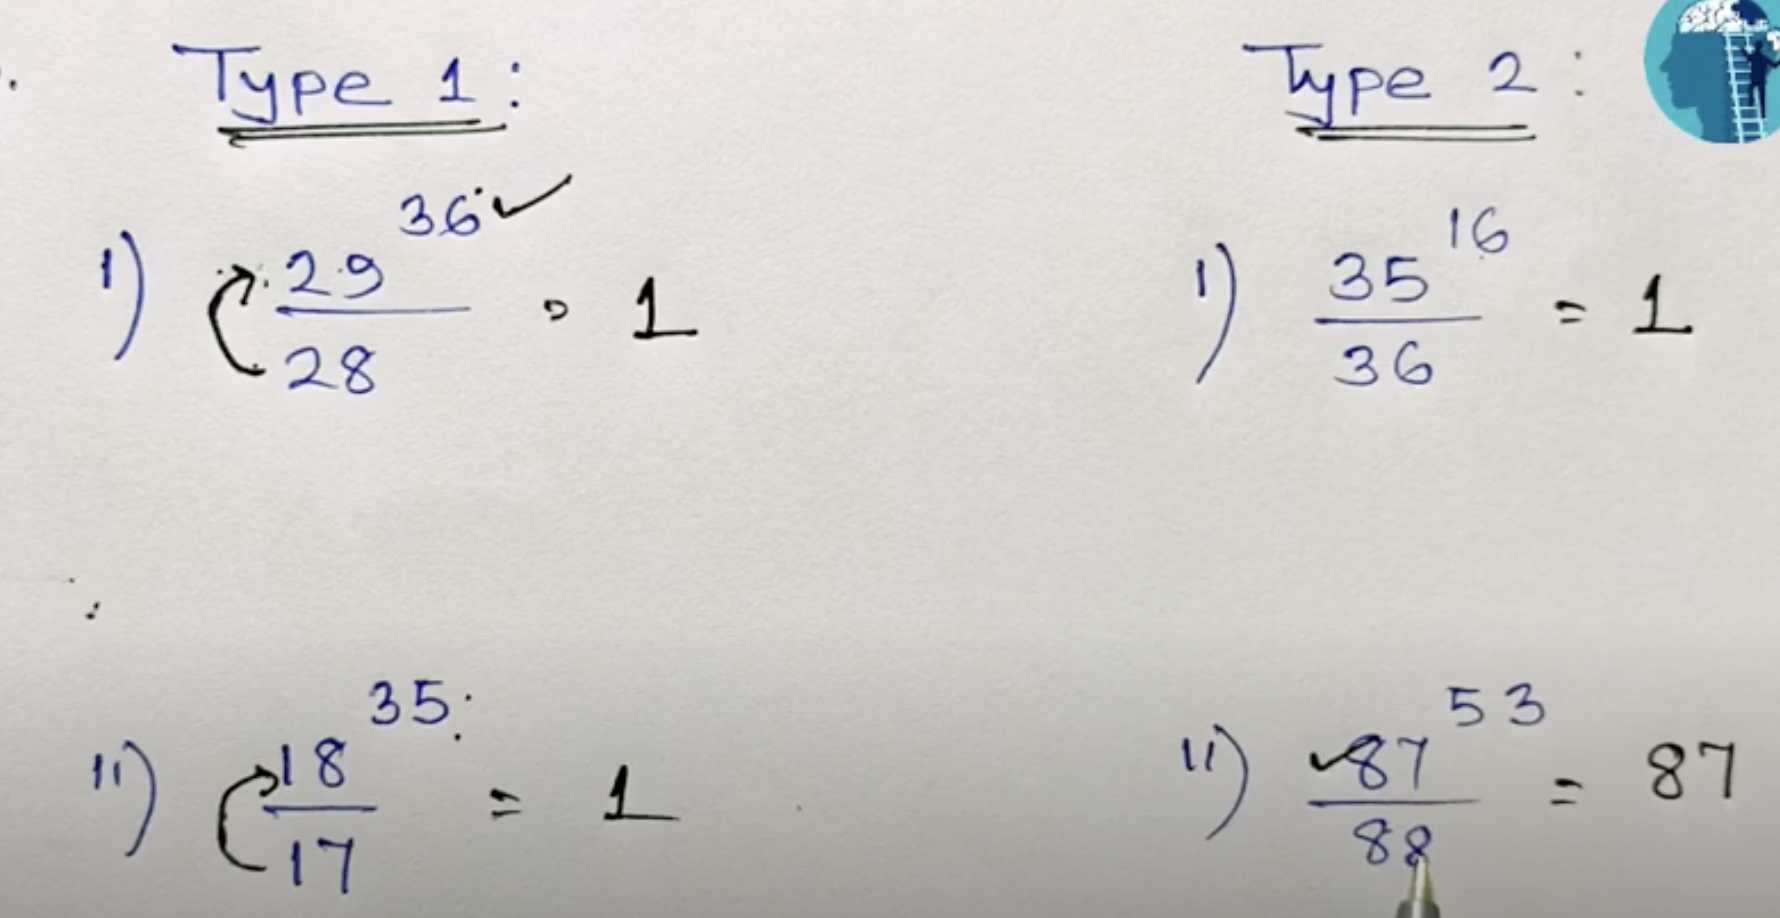 Type 1 :
1) 29^36 / 28 = 1
11) 18^35 / 17 = 1
Type 2 :
1) 35^16 / 36 = 1
11) 87^53 / 88 = 87